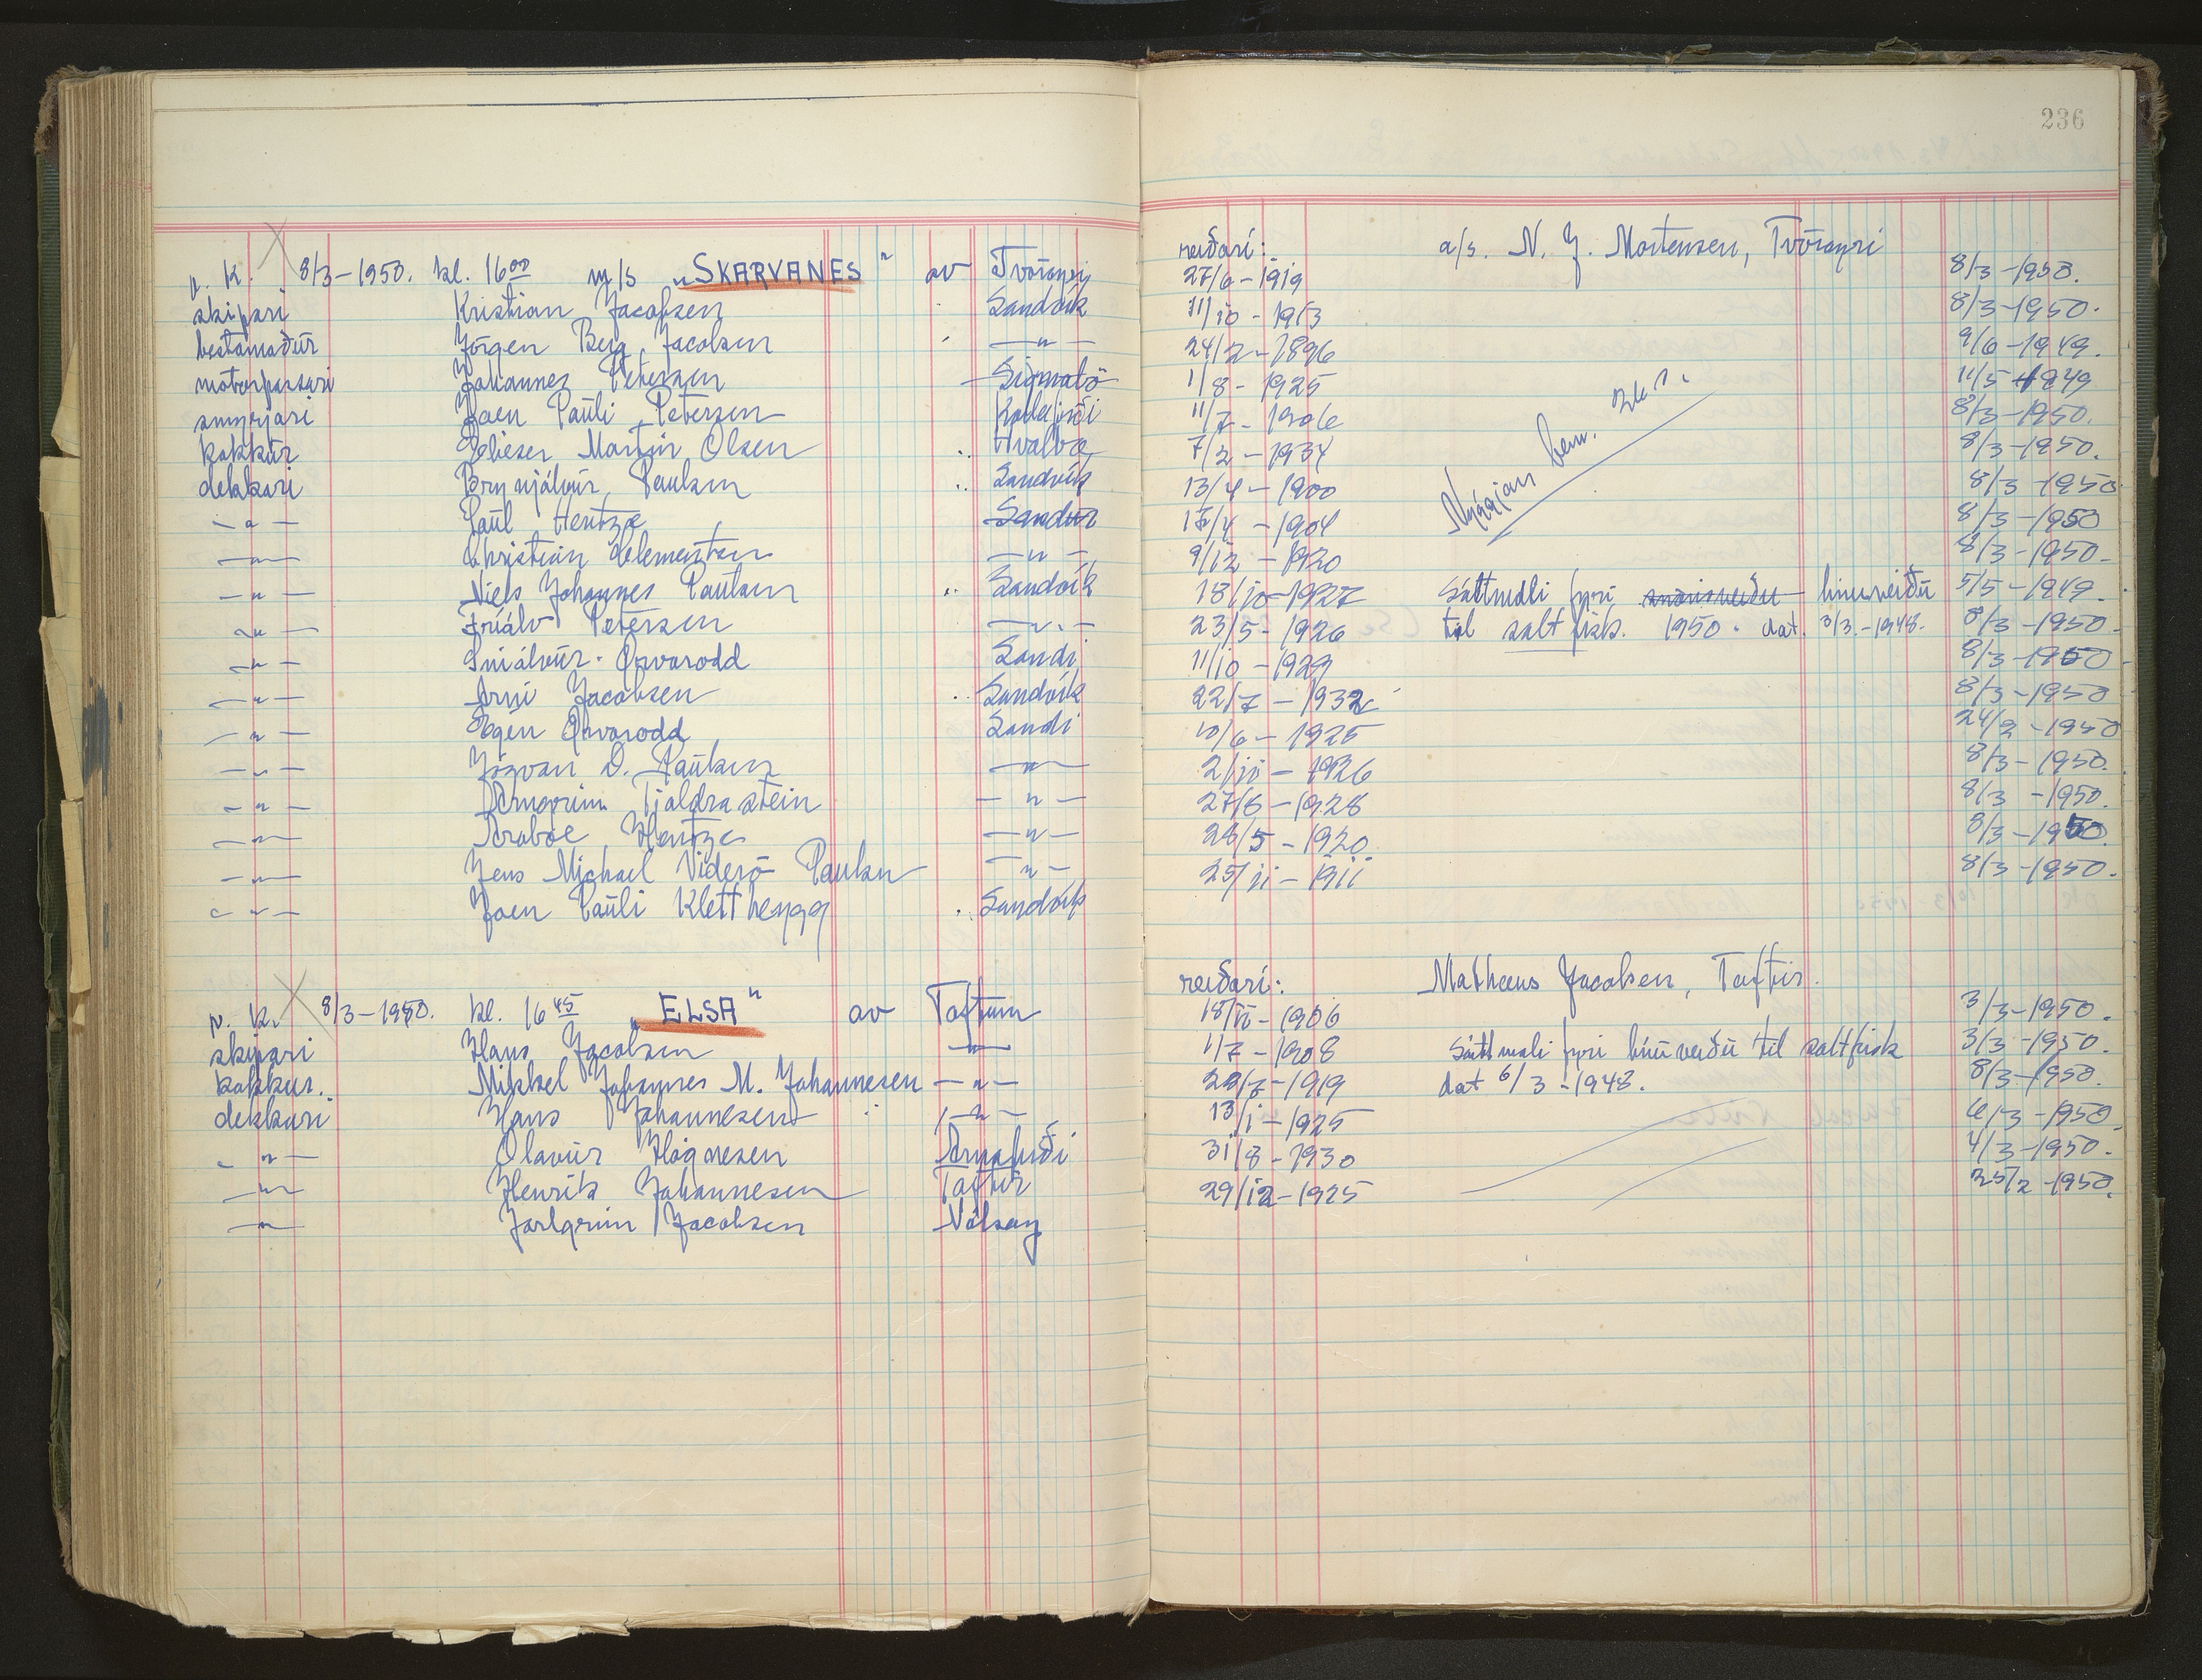 236
n. K. 8/3-1950. kl. 16 00 m/s „SKARVANES" av Tvöroyri reiðari: a/s. N. J. Mortensen, Tvöroyri
skipari Kristian Jacobsen Sandvík 27/6-1919 8/3-1950.
bestamaður Jörgen Berg Jacobsen —"— 11/10-1913 8/3-1950.
motorpassari Johannes Petersen 24/2-1896 9/6-1949.
smyrjari Joen Pauli Petersen 1/8-1925 11/5-1949
kokkur Elieser Martin Olsen Hvalba 11/7-1906 8/3-1950.
dekkari Brynjálvur Paulsen Sandvík 7/2-1934 8/3-1950.
—"— Paul Hentze Sandur 13/4-1900 8/3-1950
—"— Christian Clementsen —"— 17/4-1904 8/3-1950
—"— Niels Johannes Paulsen Sandvík 9/12-1920 8/3-1950.
—"— Fríálv Petersen —"— 18/10-1927 Sáttmáli fyri línuveiðu 5/5-1949.
—"— Sniálvur Örvarodd Sandi 23/5-1926 til saltfisk. 1950. dat. 3/3.-1948. 8/3-1950.
—"— Arni Jacobsen Sandvík 11/10-1929 8/3-1950
—"— Högni Örvarodd Sandi 22/7-1932 8/3-1950
—"— Jógvan D. Paulsen —"— 10/6-1925 24/2-1950
—"— Arngrim Tjaldrastein —"— 2/11-1926 8/3-1950.
—"— Kraboe Hentze —"— 27/6-1928 8/3-1950.
—"— Jens Michael Viderö Paulsen —"— 28/5-1920 8/3-1950.
—"— Joen Pauli Klettheygg Sandvík 25/11-1911 8/3-1950.
n. K. 8/3-1950. kl. 16 45 „ELSA" av Toftum reiðari: Matheus Jacobsen, Toftir.
skipari Hans Jacobsen —"— 18/11-1906 3/3-1950.
kokkur. Mikkel Johannes M. Johannesen —"— 1/7-1908 Sáttmáli fyri línuveiðu til saltfisk 3/3-1950.
dekkari Hans Johannesen —"— 28/7-1919 dat 6/3-1948. 8/3-1950.
—"— Olavur Högnesen Arnafirði 13/1-1925 6/3-1950.
—"— Henrik Johannesen Toftir 31/8-1930 4/3-1950.
—"— Jarlgrim Jacobsen Nólsoy 29/12-1925 25/2-1950.